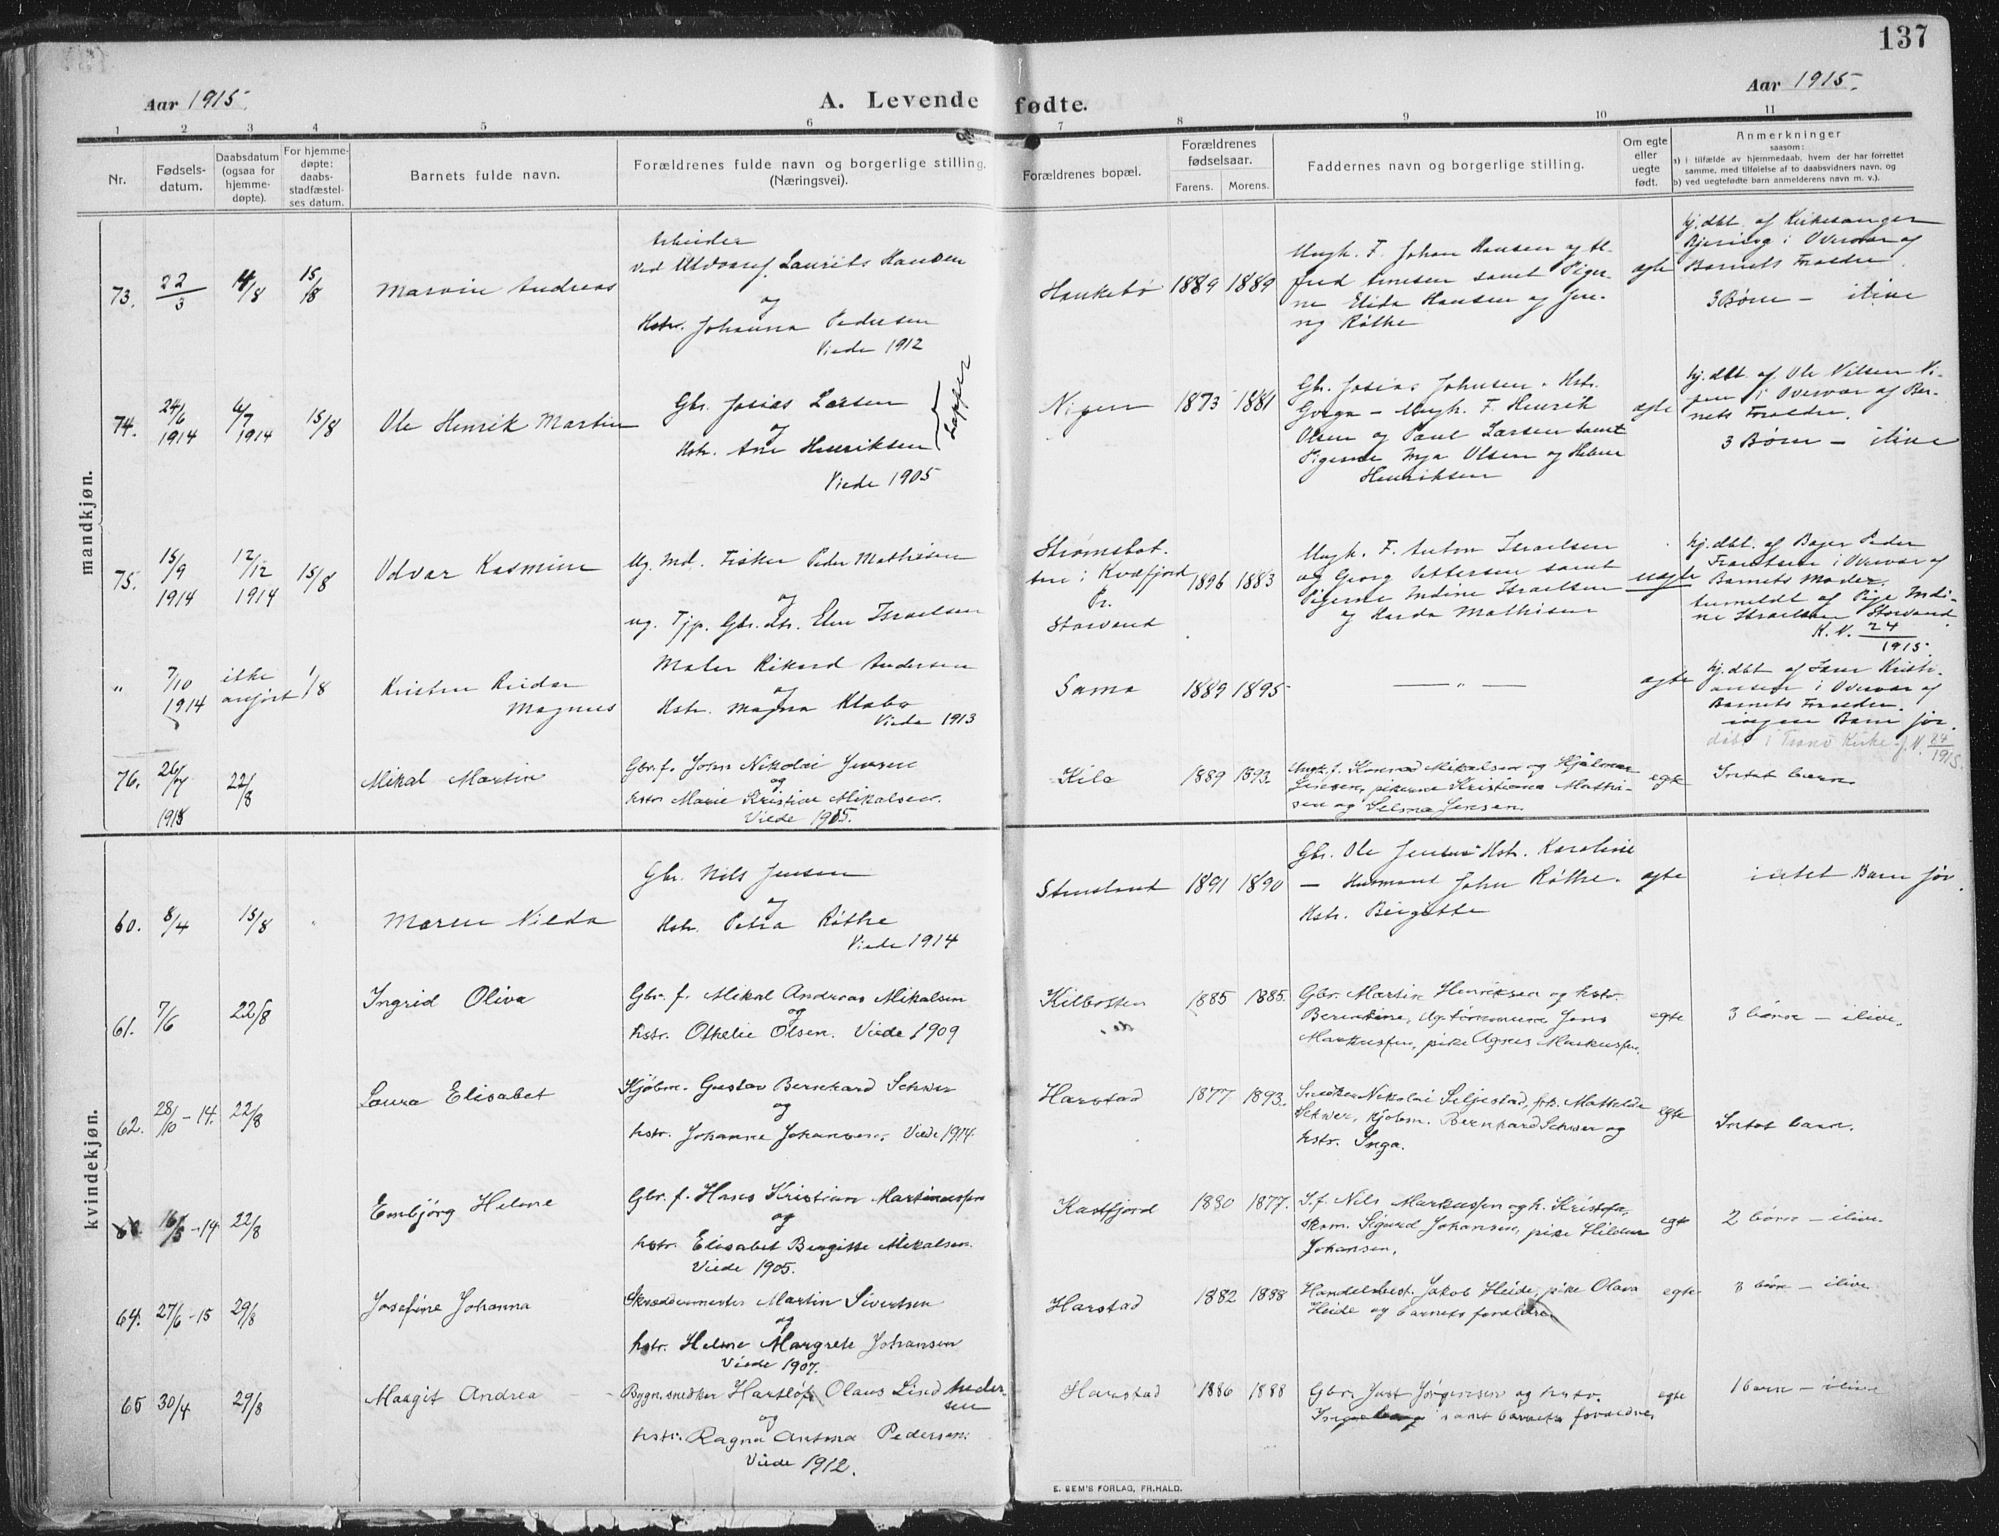 137
Aar 1915.
A. Levende fødte.
Aar 1915.
1 2 3 4 5 6 7 8 9 10 11
Nr.
Fødsels-
datum.
Daabsdatum
(ogsaa for
hjemme-
døpte).
For hjemme-
døpte:
daabs-
stadfæstel-
ses datum.
Barnets fulde navn.
Forældrenes fulde navn og borgerlige stilling.
(Næringsvei).
Forældrenes bopæl.
Forældrenes
fødselsaar.
Farens. Morens.
Faddernes navn og borgerlige stilling.
Om egte
eller
uegte
født.
Anmerkninger
saasom:
a) i tilfælde av hjemmedaab, hvem der har forrettet
samme, med tilføielse af to daabsvidners navn, og
b) ved uegtefødte barn anmelderens navn m. v.).
mandkjøn.
73.
22/3
4/8
15/8
Marvin Andreas
Arbeider
Laurits Hansen
og
Hstr. Johanna Pedersen
Viede 1912
Haukebø
1889 1889
Ungk. F. Johan Hansen og Al-
fred Arnesen samt Piger-
ne Elida Hansen og Jen-
ny Røthe
ægte
hj.dbt. af Kirkesanger
i Overvær af
Barnets Forældre.
3 Børn – ilive
74.
24/6 1914
6/7 1914
15/8
Ole Henrik Martin
Gbr. Josias Larsen
og
Hstr. Ane Henriksen
Lapper
Viede 1905
Nipen
1873 1881
Gbr. Josias Johnsen. Hstr.
– Ungk. F. Henrik
Olsen og Paul Larsen samt
Pigerne Inga Olsen og
Henriksen
ægte
hj.dbt. af Ole Nilsen Ni-
pen i Overvær af Bar-
nets Forældre.
3 Børn – ilive
75.
15/9 1914
12/12 1914
15/8
Odvar Kasmine
Ug. Md. Fisker Peder Mathisen
og
ug. Tjp. Gbr.dtr. Elen Israelsen
Strømsbot-
ten i Kvæfjord
Pr.
Storvand
1896 1883
Ungk. F. Anton Israelsen
og Georg Pettersen samt
Pigerne Indine Israelsen
og Harda Mathisen
uægte
hj.dbt. af Peder
Frantsen i Overvær af
Barnets Moder.
Anmeldt af Pige Indi-
ne Israelsen Storvand
K. N. 24/1915.
"
7/10 1914
ikke
anført
1/8
Kristen Reidar
Magnus
Maler Rikard Andersen
og
Hstr. Magna Klabo
Viede 1913
Sama
1889 1895
— " —
ægte
hj.dbt af Jens Kristi-
ansen i Overvær af
Barnets Forældre.
ingen Barn før.
døbt i Trano Kirke J. N. 84/1915.
76.
26/7 1915
22/8
Mikal Martin
Gbr. f. John Nikolai Jensen
og
hstr Marie Kristine Mikalsen.
Viede 1915.
Kila
1889 1893.
Ungk. f. Konrad Mikalsen og Hjalmar
Jensen, pikerne Kristiana Mathi-
sen og Selma Jensen.
egte
Intet barn
kvindekjøn.
60.
8/4
15/8
Maren Nilda
Gbr. Nils Jensen
og
Hstr. Petra Røthe
Viede 1914
Stensland
1891 1890
Gbr. Ole Jensen Hstr. Karoline
— Husmand John Røthe.
Hstr. Birgitte
ægte
intet Barn før.
61.
7/6
22/8
Ingrid Oliva
Gbr. f. Mikal Andreas Mikalsen
og
hstr. Othelie Olsen. Viede 1909
Kilbotten
1885 1885.
Gbr. Martin Henriksen og hstr.
Berentine, Jens
Markussen, pike Agnes Markussen.
egte
3 børn – ilive.
62.
28/10 – 14.
22/8
Laura Elisabet
Kjøbm. Gustav Bernhard Schwer
og
hstr. Johanne Johansen, Viede 1914.
Harstad
1877 1893.
Snedker Nikolai Siljestad, frk. Mathilde
Schwer, kjøbm. Bernhard Schwer og
hstr. Inga.
egte
Intet barn.
63.
16/5 – 14.
22/8
Embjørg Helene
Gbr. f. Hans Kristian Martinussen
og
hstr. Elisabet Bergitte Mikalsen.
Viede 1905.
Kasfjord
1880 1877.
S. f. Nils Markussen og h. Kristofa,
Skom. Sigurd Johansen, pike Hildur
Johansen.
egte
2 børn – ilive.
64.
27/6 – 15
29/8
Josefine Johanna
Skreddermester Martin Sivertsen
og
hstr. Helene Margrete Johansen
Viede 1907.
Harstad
1882 1888
Handelsbest. Jakob Heide, pike Olava
Heide og barnets foreldre
egte
3 børn – ilive.
65
30/4
29/8
Maagit Andrea
Bygn.snedker Hartløf Olaus Lind Peder-
sen
og
hstr. Ragna Antona Pedersen.
Viede 1912.
Harstad
1886 1888
Gbr. Just Jørgensen og hstr.
Ingeborg samt barnets foreldre,
egte
1 barn – ilive
E. SEM'S FORLAG, FR.HALD.